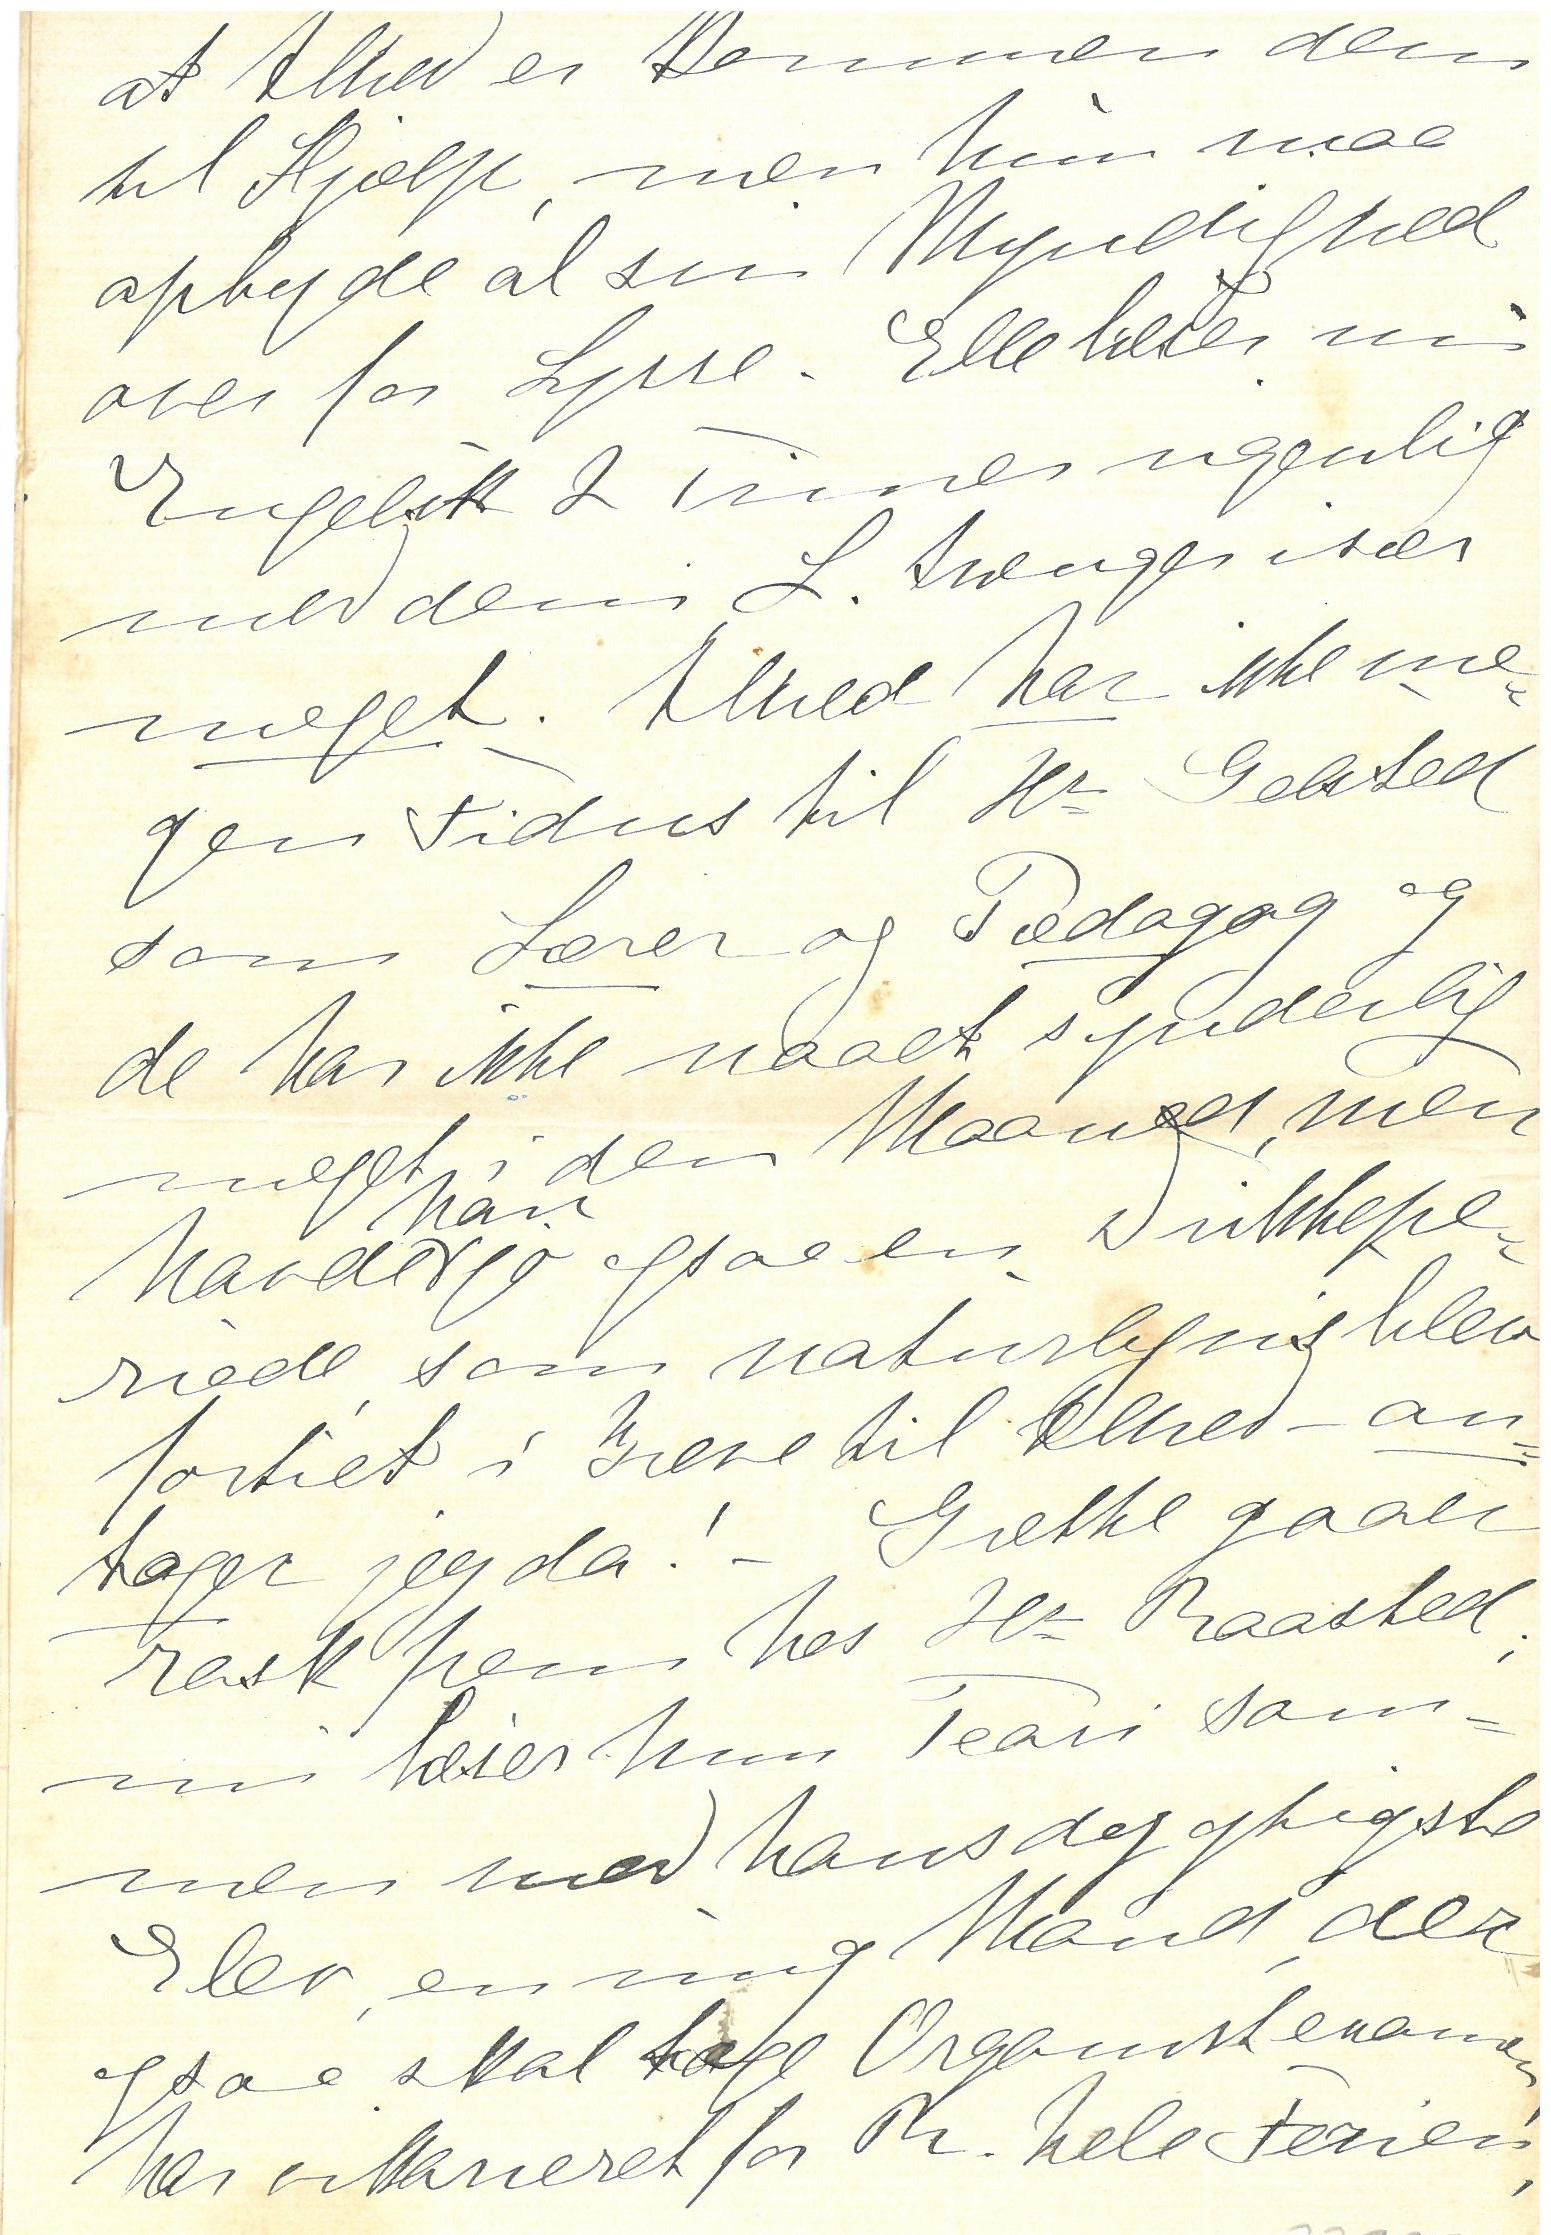 at Alhed er kommen dem
til Hjælp, men hun maa
opbyde al sin Myndighed
over for Lysse. Elle læser nu
Engelsk 2 Timer ugenlig
med dem, L. trænger især
meget. Alhed har ikke me-
gen Fidus til Hr Gelsted
som Lærer og Pædagog og
de har ikke naaet synderlig
meget i den Maaned, men
havde han jo ogsaa en Drikkepe-
riode, som naturligvis blev
fortiet i Breve til Alhed – an-
tager jeg da! – Grethe gaaer
rask frem hos Hr Raasted,
nu læser hun Teori sam-
men med hans dygtigste
Elev, en ung Mand, der
ogsaa skal tage Organisteksamen,
har vikarieret for R. hele Ferien,